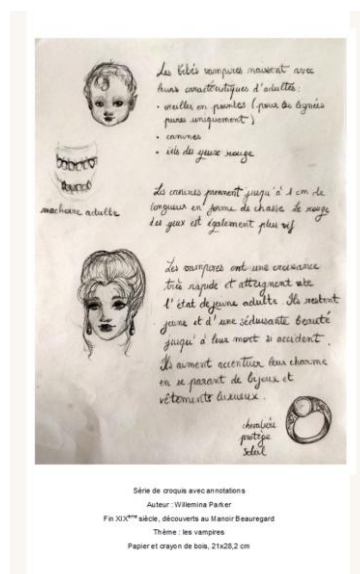 Les bébés vampires naissent avec
leurs caractéristiques d'adultes :
• oreilles en pointes (pour les lignées
pures uniquement)
• canines
• iris des yeux rouge
machoire adulte
Les canines prennent jusqu'à 1 cm de
longueur en forme de chasse le rouge
des yeux est également plus vif
Les vampires ont une croissance
très rapide et atteignent vite
l'état de jeune adulte. Ils restent
jeune et d'une séduisante beauté
jusqu'à leur mort si accident.
Ils aiment accentuer leur charme
en se parant de bijoux et
vêtements luxueux.
chevalière
protège
soleil
Série de croquis avec annotations
Auteur : Willemina Parker
Fin XIXème siècle, découverts au Manoir Beauregard
Thème : les vampires
Papier et crayon de bois, 21x28,2 cm